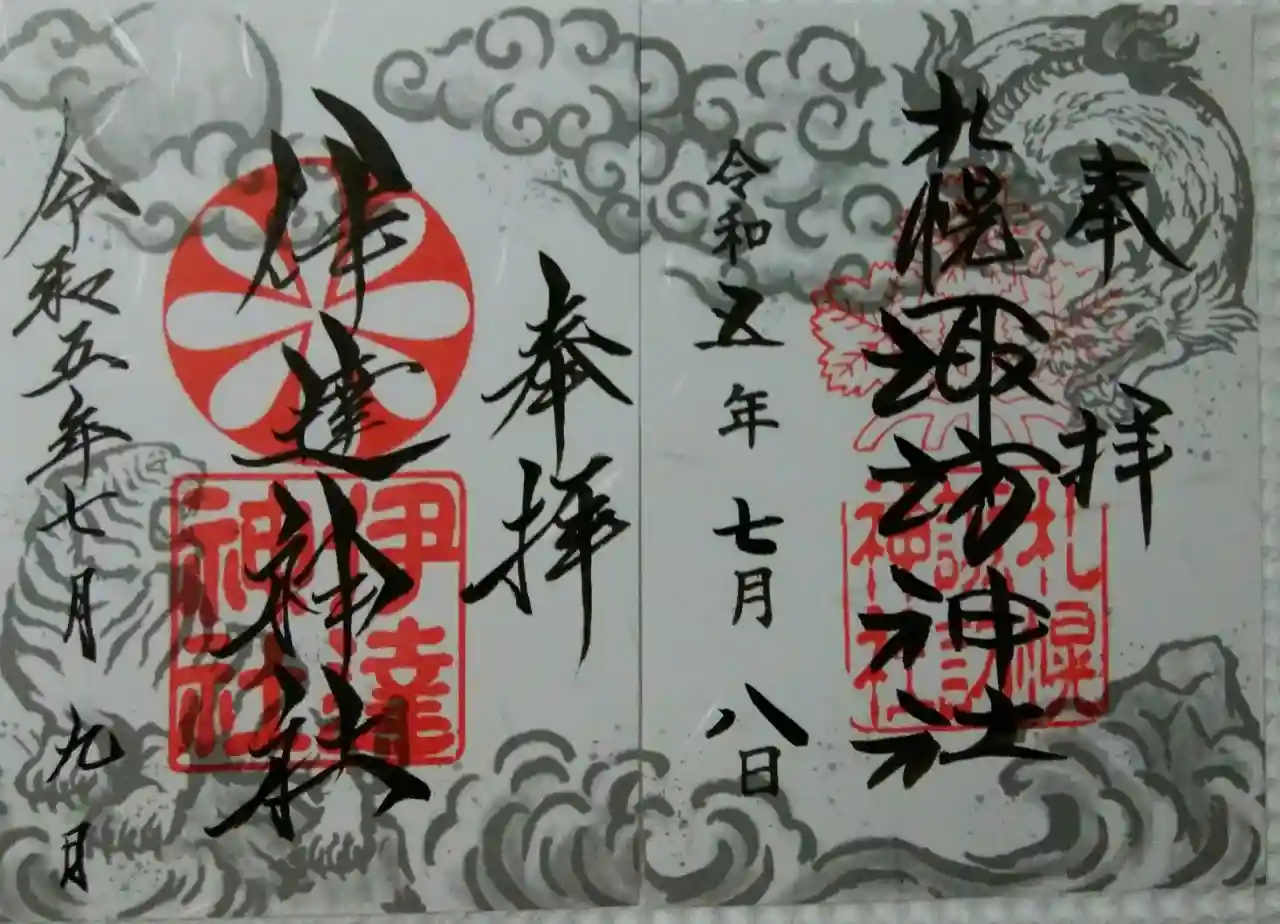 奉拝
札幌諏訪神社
札幌
諏訪
神社
令和五年七月八日
奉拝
伊達神社
伊達
神社
令和五年七月九日